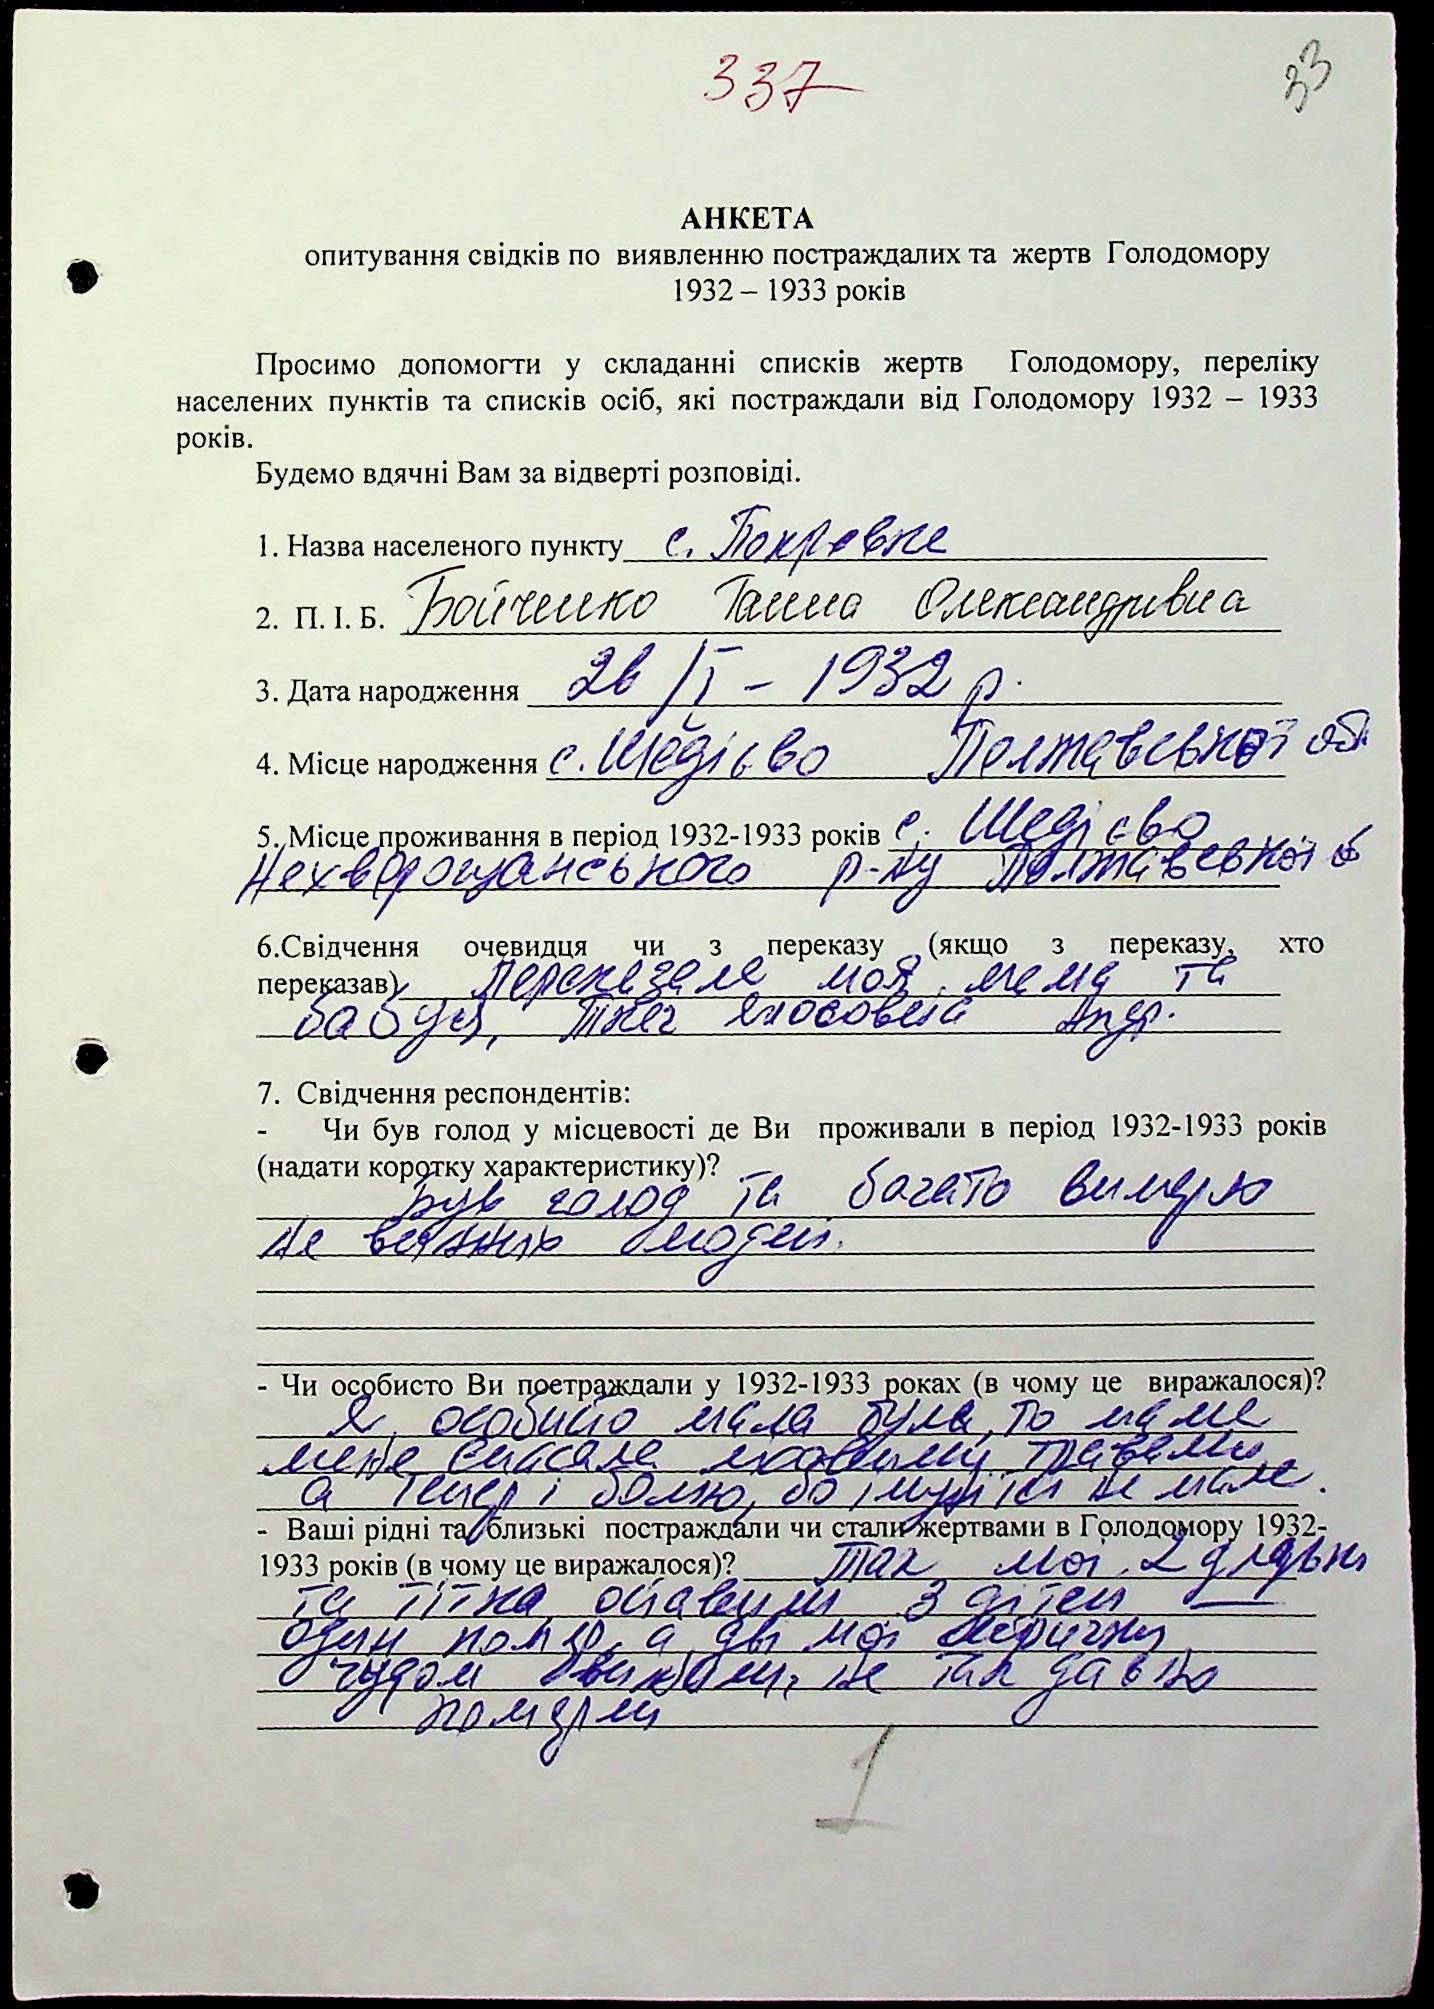 337
33
АНКЕТА
опитування свідків по виявленню постраждалих та жертв Голодомору
1932 – 1933 років
Просимо допомогти у складанні списків жертв Голодомору, переліку
населених пунктів та списків осіб, які постраждали від Голодомору 1932 – 1933
років.
Будемо вдячні Вам за відверті розповіді.
1. Назва населеного пункту с. Покровка
2. П. І. Б. Бойченко Ганна Олександрівна
3. Дата народження 26/I – 1932 р.
4. Місце народження с. Шедієво Полтавської обл
5. Місце проживання в період 1932-1933 років с. Шедієво
Нехворощанського р-ну Полтавської о
6.Свідчення очевидця чи з переказу (якщо з переказу, хто
переказав) Переказала моя мама та
бабуся, Андр.
7. Свідчення респондентів:
- Чи був голод у місцевості де Ви проживали в період 1932-1933 років
(надати коротку характеристику)?
Був голод та багато вимерло
не людей.
- Чи особисто Ви постраждали у 1932-1933 роках (в чому це виражалося)?
Я особисто мала була, то мама
мене спасала травами,
а тепер і болію, бо імунітет не мала.
- Ваші рідні та близькі постраждали чи стали жертвами в Голодомору 1932-
1933 років (в чому це виражалося)? Так мої 2 дядьки
та тітка оставили 3 дітей
один помер, а дві мої сестрички
чудом вижили, не так давно
померли
1